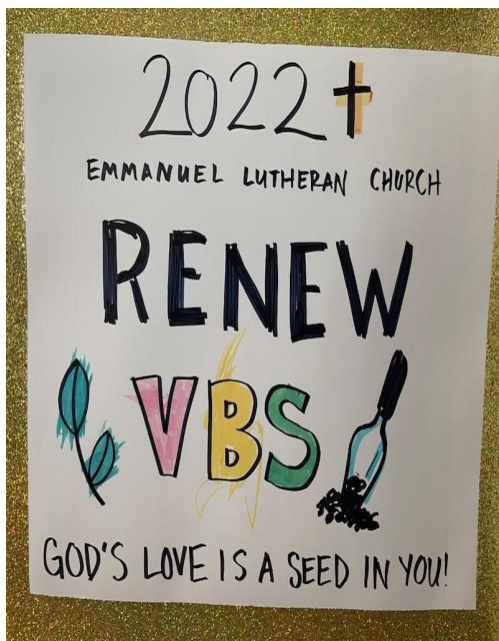 2022
EMMANUEL LUTHERAN CHURCH
RENEW
VBS
GOD'S LOVE IS A SEED IN YOU!